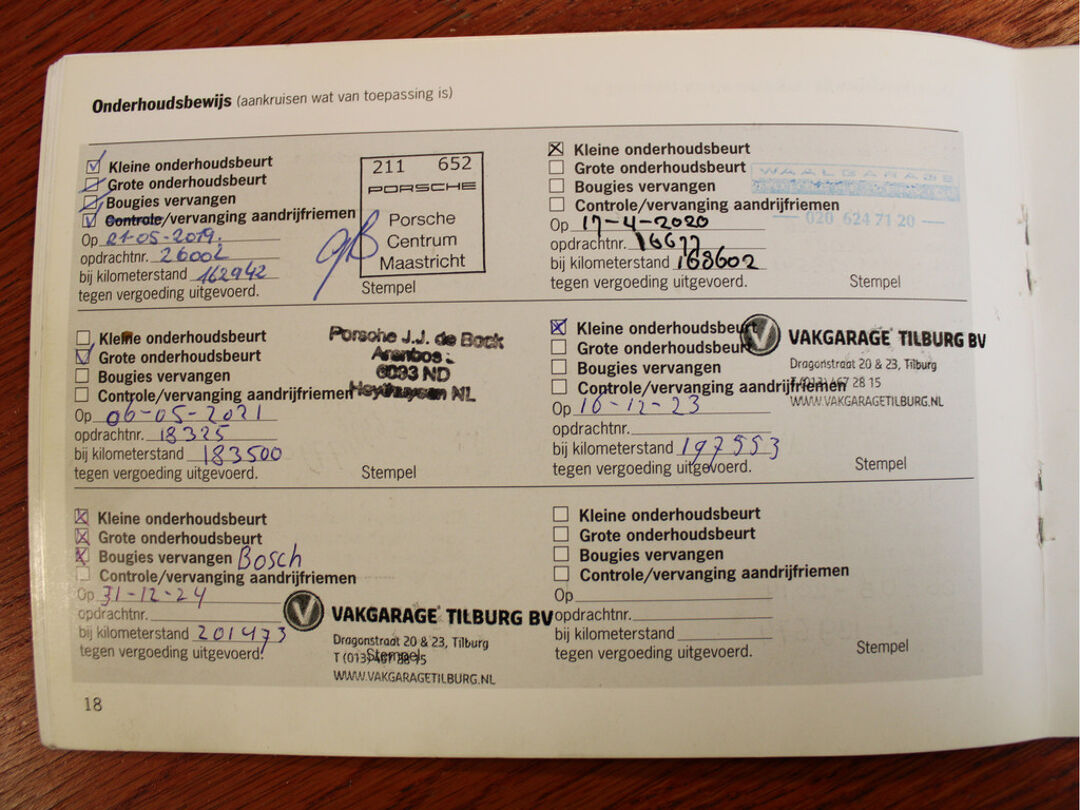 Onderhoudsbewijs (aankruisen wat van toepassing is)
Kleine onderhoudsbeurt
Grote onderhoudsbeurt
Bougies vervangen
Controle/vervanging aandrijfriemen
Op 21-05-2019.
opdrachtnr. 26002
bij kilometerstand 162942
tegen vergoeding uitgevoerd.
211 652
PORSCHE
Porsche
Centrum
Maastricht
Stempel
Kleine onderhoudsbeurt
Grote onderhoudsbeurt
Bougies vervangen
Controle/vervanging aandrijfriemen
Op 17-4-2020
opdrachtnr. 16677
bij kilometerstand 168602
tegen vergoeding uitgevoerd.
WAALGARAGE
020 624 71 20
Stempel
Kleine onderhoudsbeurt
Grote onderhoudsbeurt
Bougies vervangen
Controle/vervanging aandrijfriemen
Op 06-05-2021
opdrachtnr. 18325
bij kilometerstand 183500
tegen vergoeding uitgevoerd.
Porsche J.J. de Bock
6093 ND
Heythuysen NL
Stempel
Kleine onderhoudsbeurt
Grote onderhoudsbeurt
Bougies vervangen
Controle/vervanging aandrijfriemen
Op 16-12-23
opdrachtnr.
bij kilometerstand 197553
tegen vergoeding uitgevoerd.
VAKGARAGE TILBURG BV
Dragonstraat 20 & 23, Tilburg
T (013) 467 28 15
WWW.VAKGARAGETILBURG.NL
Stempel
Kleine onderhoudsbeurt
Grote onderhoudsbeurt
Bougies vervangen Bosch
Controle/vervanging aandrijfriemen
Op 31-12-24
opdrachtnr.
bij kilometerstand 201473
tegen vergoeding uitgevoerd.
VAKGARAGE TILBURG BV
Dragonstraat 20 & 23, Tilburg
T (013) 467 28 15
WWW.VAKGARAGETILBURG.NL
Stempel
Kleine onderhoudsbeurt
Grote onderhoudsbeurt
Bougies vervangen
Controle/vervanging aandrijfriemen
Op
opdrachtnr.
bij kilometerstand
tegen vergoeding uitgevoerd.
Stempel
18